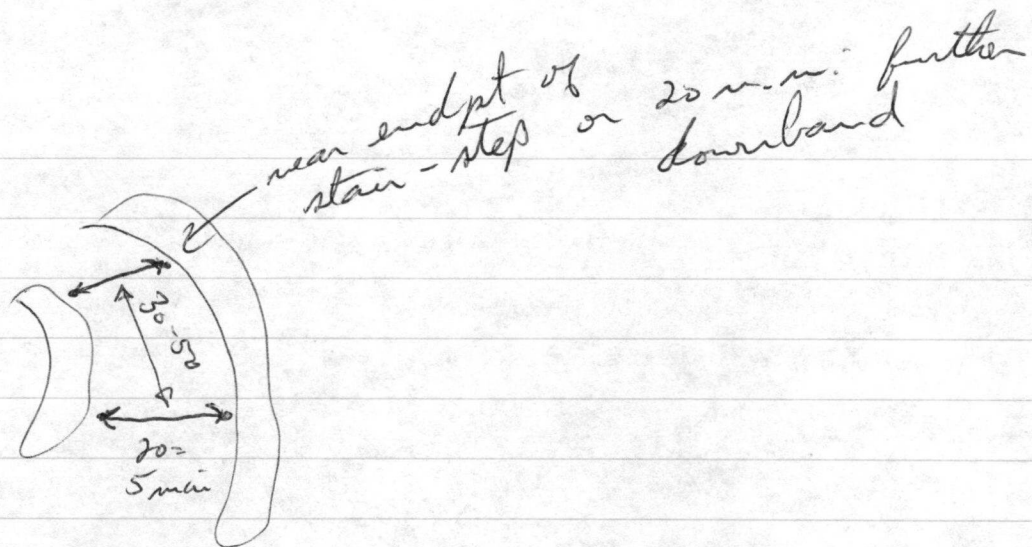 near endpt of
stair-step or 20 n.m. further
downband
30-50
20=
5 min